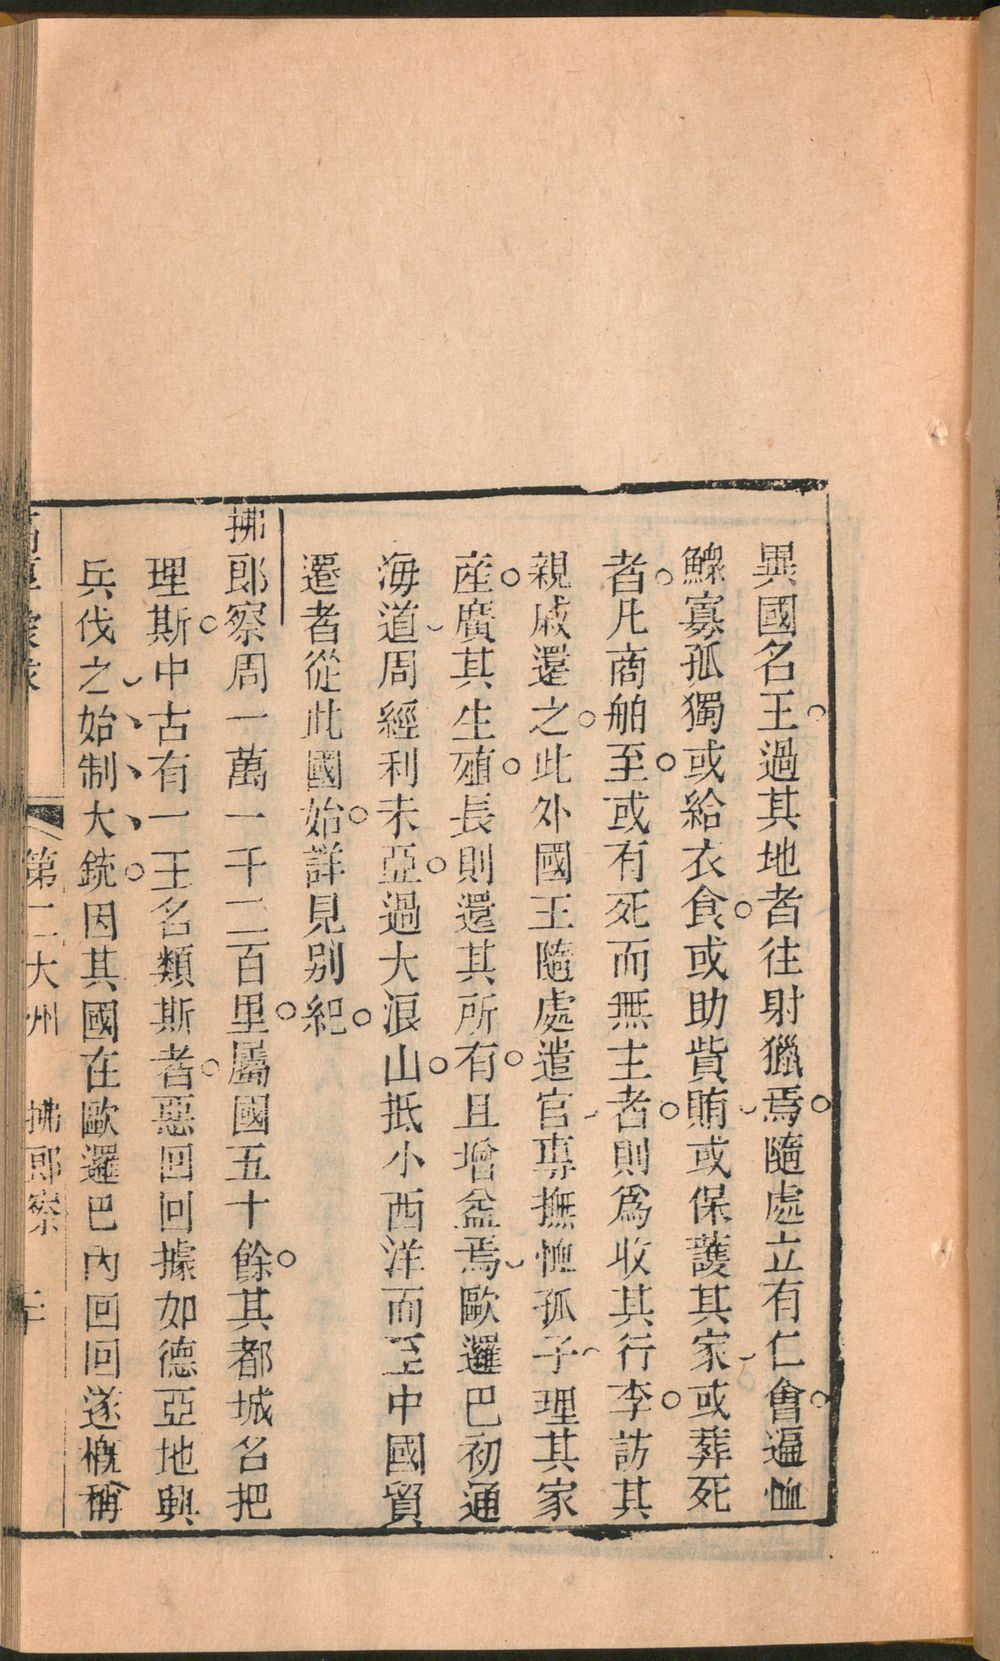 異國名王過其地者往射獵焉隨處立有仁會遍恤
鰥寡孤獨或給衣食或助貲賄或保護其家或葬死
者凡商舶至或有死而無主者則爲收其行李訪其
親戚還之此外國王隨處遣官專撫恤孤子理其家
産廣其生殖長則還其所有且增益焉歐邏巴初通
海道周經利未亞過大浪山抵小西洋而至中國貿
遷者從此國始詳見別紀
拂郎察周一萬一千二百里屬國五十餘其都城名把
理斯中古有一王名類斯者惡回回據如德亞地興
兵伐之始制大銃因其國在歐邏巴內回回遂概稱
第二大州 拂郎察